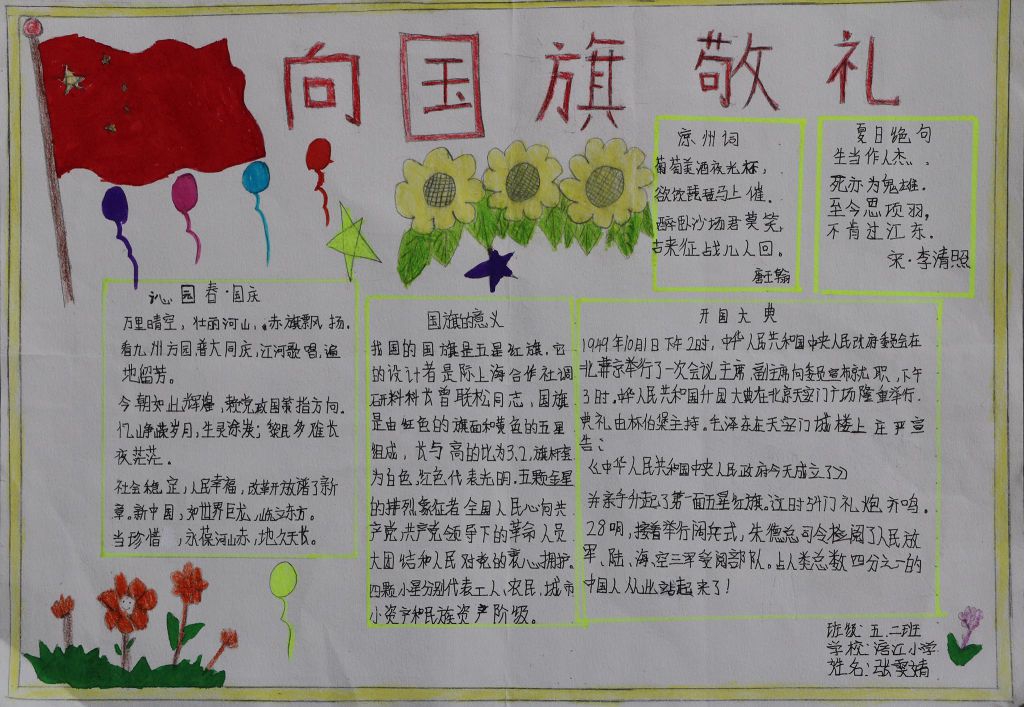 向国旗敬礼
凉州词
葡萄美酒夜光杯，
欲饮琵琶马上催．
醉卧沙场君莫笑，
古来征战几人回。
唐王翰
夏日绝句
生当作人杰．
死亦为鬼雄．
至今思项羽，
不肯过江东．
宋·李清照
沁园春·国庆
万里晴空，壮丽河山，赤旗飘扬．
看九州方园普大同庆，江河歌唱，遍
地留芳。
今朝如此辉煌，党政国策指方向．
忆峥嵘岁月，生灵涂炭；黎民多难长
夜茫茫．
社会稳定，人民幸福，改革开放谱了新
章。新中国，如世界巨龙，屹立东方。
当珍惜，永葆河山赤，地久天长。
国旗的意义
我国的国旗是五星红旗．它
的设计者是际上海合作社调
研科科长曾联松同志，国旗
是由红色的旗面和黄色的五星
组成，长与高的比为3:2，旗杆套
为白色．红色代表光明．五颗金星
的排列象征者全国人民心向共
产党．共产党领导下的革命人员
大团结和人民对党的衷心拥护．
四颗小星分别代表工人、农民、城市
小资产和民族资产阶级。
开国大典
1949年10月1日下午2时，中华人民共和国中央人民政府委员会在
北京举行了一次会议．主席、副主席向委员宣布就职，下午
3时．中华人民共和国开国大典在北京天安门广场隆重举行．
典礼由林伯渠主持．毛泽东在天安门城楼上庄严宣
告：
《中华人民共和国中央人民政府今天成立了》
并亲手升起了第一面五星红旗。这时54门礼炮齐鸣．
28响，接着举行阅兵式，朱德总司令检阅了人民放
军、陆、海、空三军受阅部队。占人类总数四分之一的
中国人从此站起来了！
班级：五．二班
学校：涪江小学
姓名：张雯婧